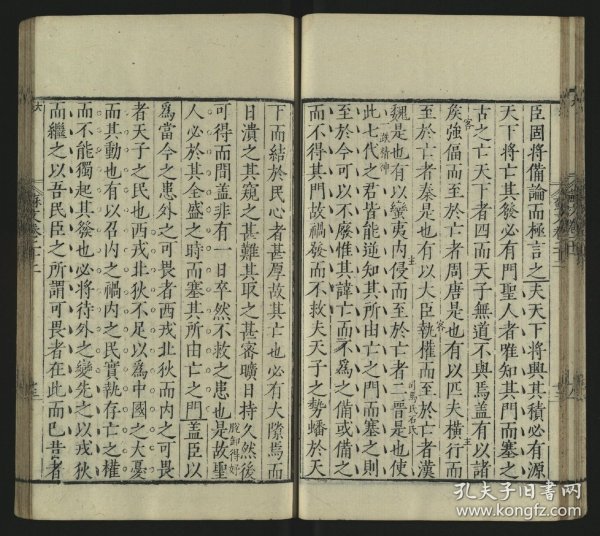 臣固將備論而極言之夫天下將興其積必有源
天下將亡其發必有門聖人者唯知其門而塞之
古之亡天下者四而天子無道不與焉蓋有以諸
侯強偪而至於亡者周唐是也有以匹夫橫行而
至於亡者秦是也有以大臣執權而至於亡者漢
魏是也有以蠻夷内侵而至於亡者二晉是也使
司馬氏石氏
此七代之君皆能逆知其所由亡之門而塞之則
至於今可以不廢惟其諱亡而不爲之備或備之
而不得其門故禍發而不救夫天子之勢蟠於天
客
主
客
主
下而結於民心者甚厚故其亡也必有大隙焉而
日潰之其窺之甚難其取之甚審曠日持久然後
可得而間蓋非有一日卒然不救之患也是故聖
脫卸得好
人必於其全盛之時而塞其所由亡之門蓋臣以
爲當今之患外之可畏者西戎北狄而内之可畏
者天子之民也西戎北狄不足以爲中國之大憂
而其動也有以召内之禍内之民實執存亡之權
而不能獨起其發也必將待外之變先之以戎狄
而繼之以吾民臣之所謂可畏者在此而已昔者
孔夫子旧书网
www.kongfz.com